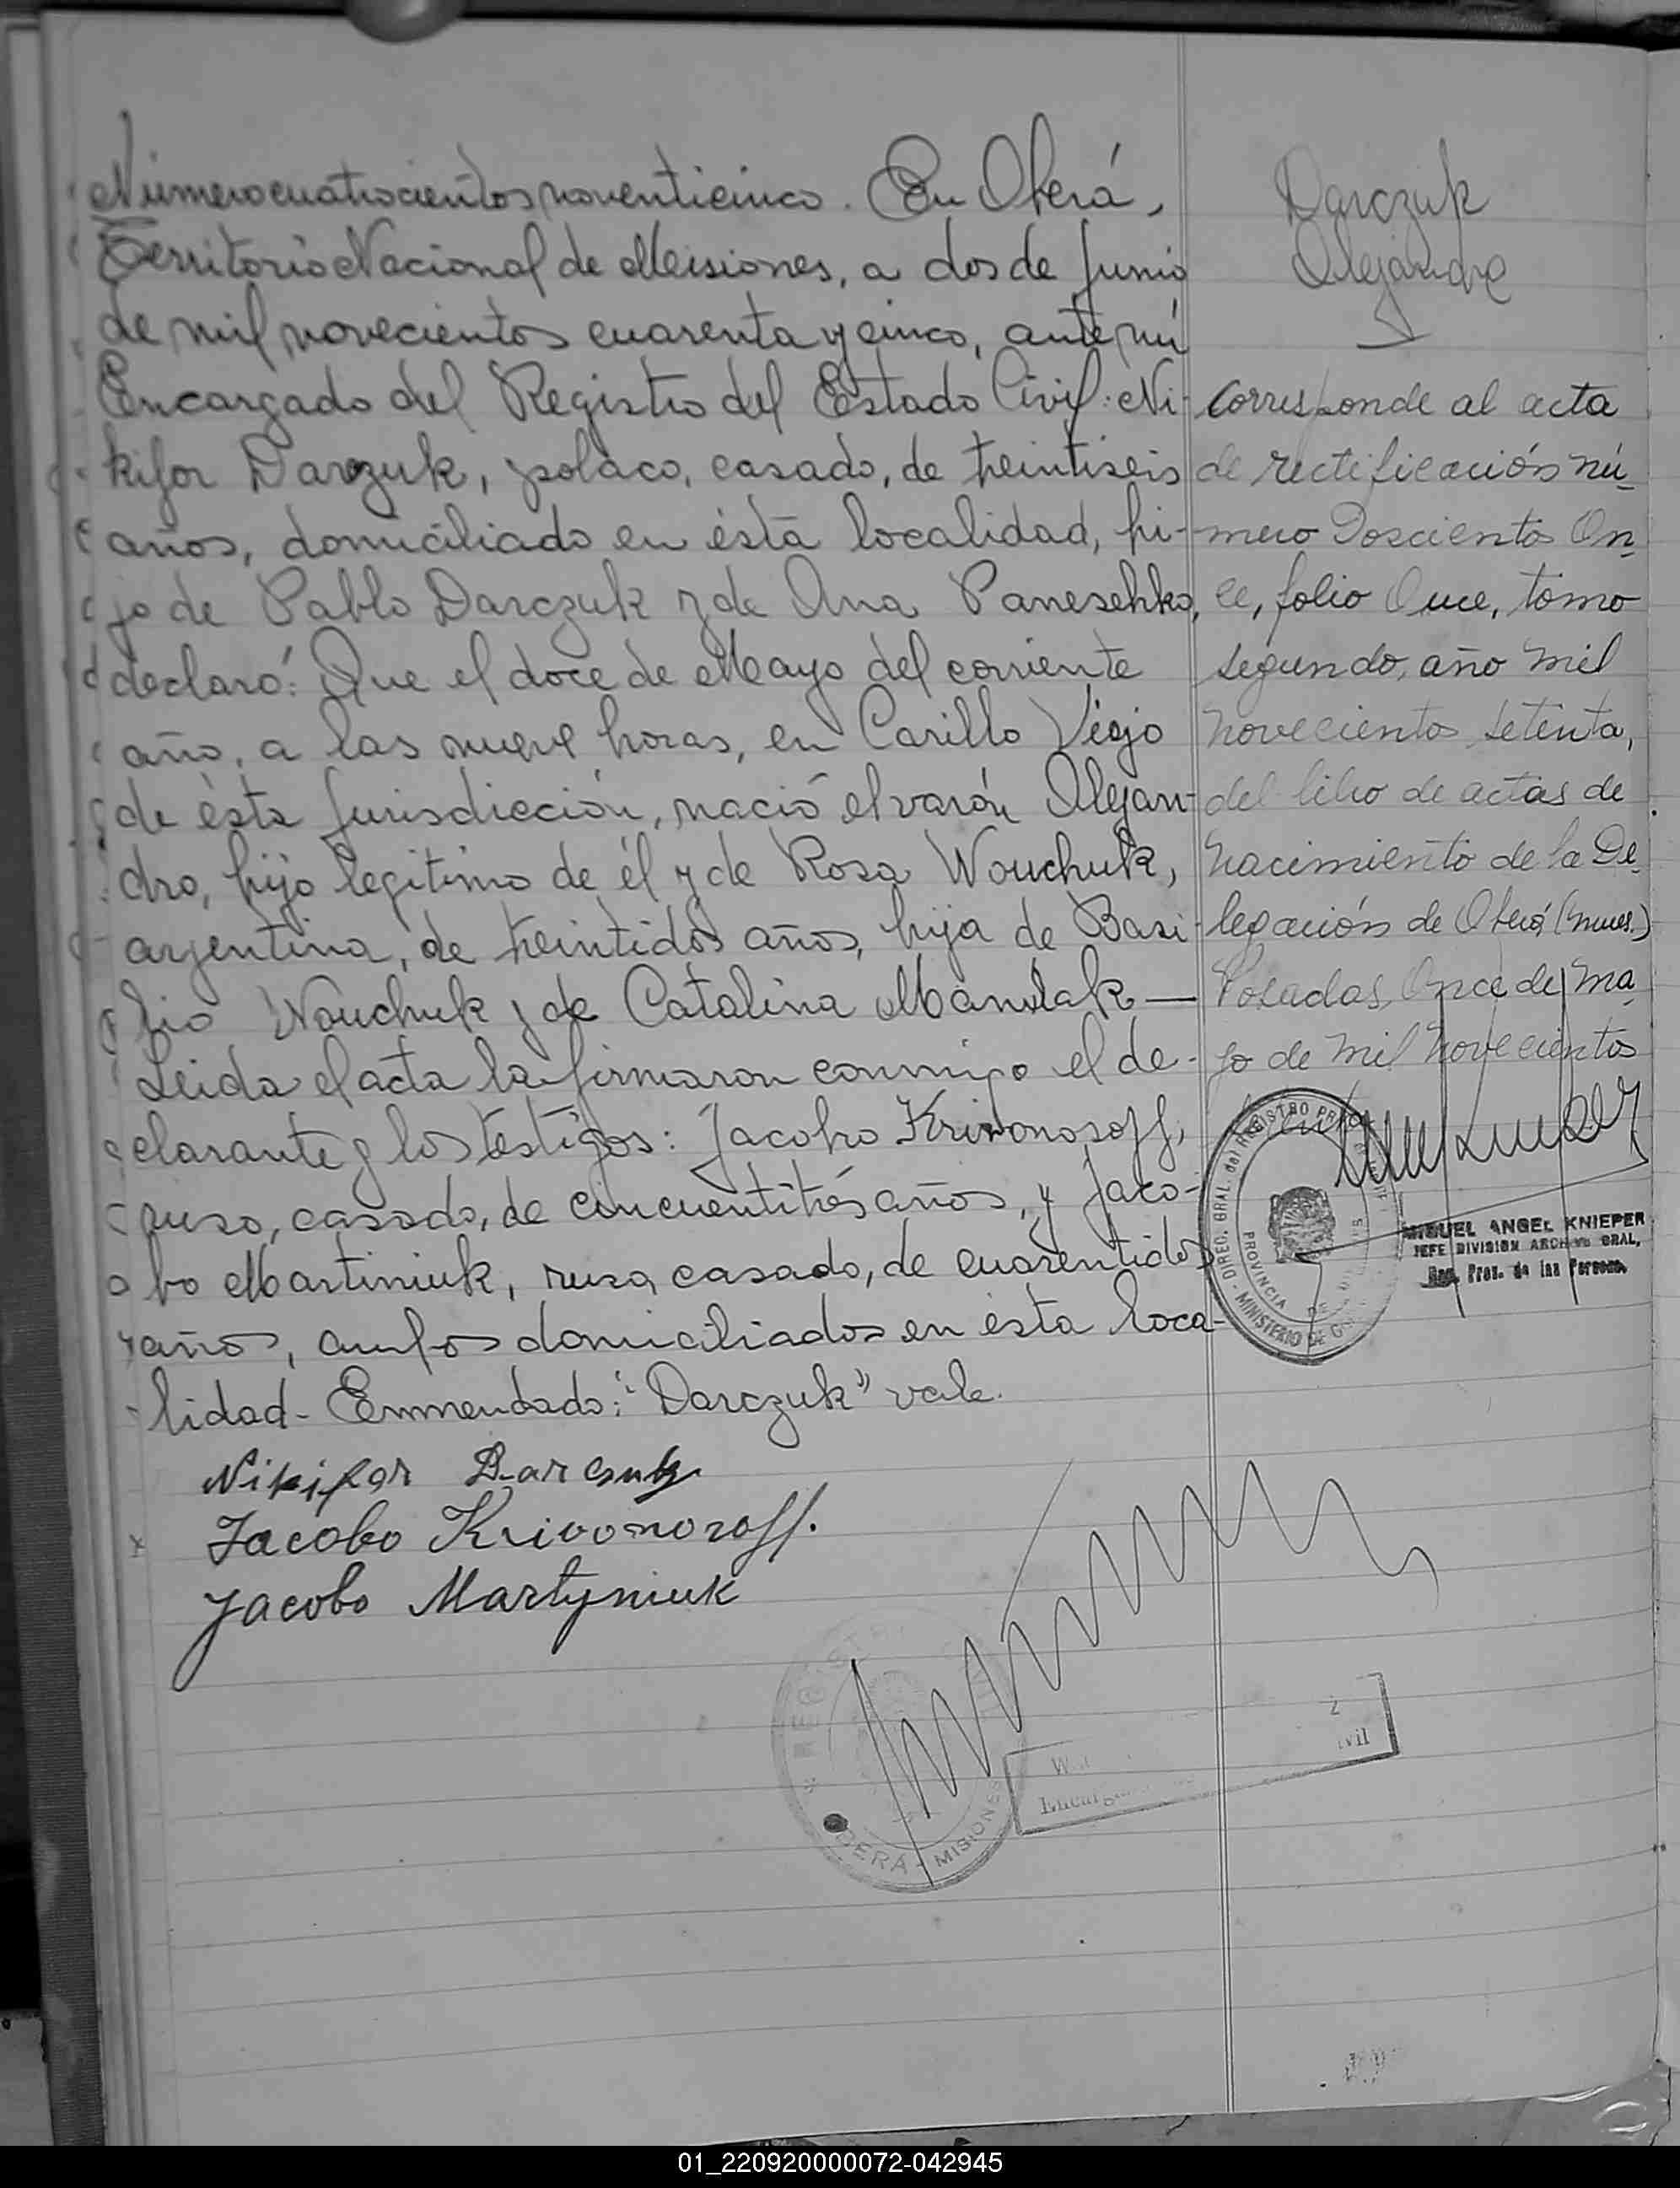 Número cuatrocientos noventicinco. En Oberá,
Territorio Nacional de Misiones, a dos de Junio
de mil novecientos cuarenta y cinco, ante mí
Encargado del Registro del Estado Civil: Ni-
kifor Darczuk, polaco, casado, de treintiseis
años, domiciliado en ésta localidad, hi-
jo de Pablo Darczuk y de Ana Paneschko,
declaró: Que el doce de Mayo del corriente
año, a las nueve horas, en Carillo Viejo
de ésta Jurisdicción, nació el varón Alejan-
dro, hijo legitimo de él y de Rosa Wouchuk,
argentina, de treintidós años, hija de Basi-
lio Wouchuk y de Catalina Mandak—
Leida el acta la firmaron conmigo el de-
clarante y los testigos: Jacobo Krivonosoff,
ruso, casado, de cincuentitrés años, y Jaco-
bo Martiniuk, ruso, casado, de cuarentidos
años, ambos domiciliados en ésta loca-
lidad- Enmendado: "Darczuk" vale.
Nikifor Darczuk
Jacobo Krivonosoff.
Jacobo Martyniuk
Darczuk
Alejandro
Corresponde al acta
de rectificación nú-
mero Doscientos On-
ce, folio Once, tomo
segundo, año mil
novecientos setenta,
del libro de actas de
nacimiento de la De-
legación de Oberá (mnes.)
Posadas, Once de Ma-
yo de mil novecientos
DIREC. GRAL. del REGISTRO PROVINCIA DE MINISTERIO DE
MIGUEL ANGEL KNIEPER
JEFE DIVISION ARCHIVO GRAL,
Reg. Prov. de las Person.
OBERÁ - MISIONES
01_220920000072-042945